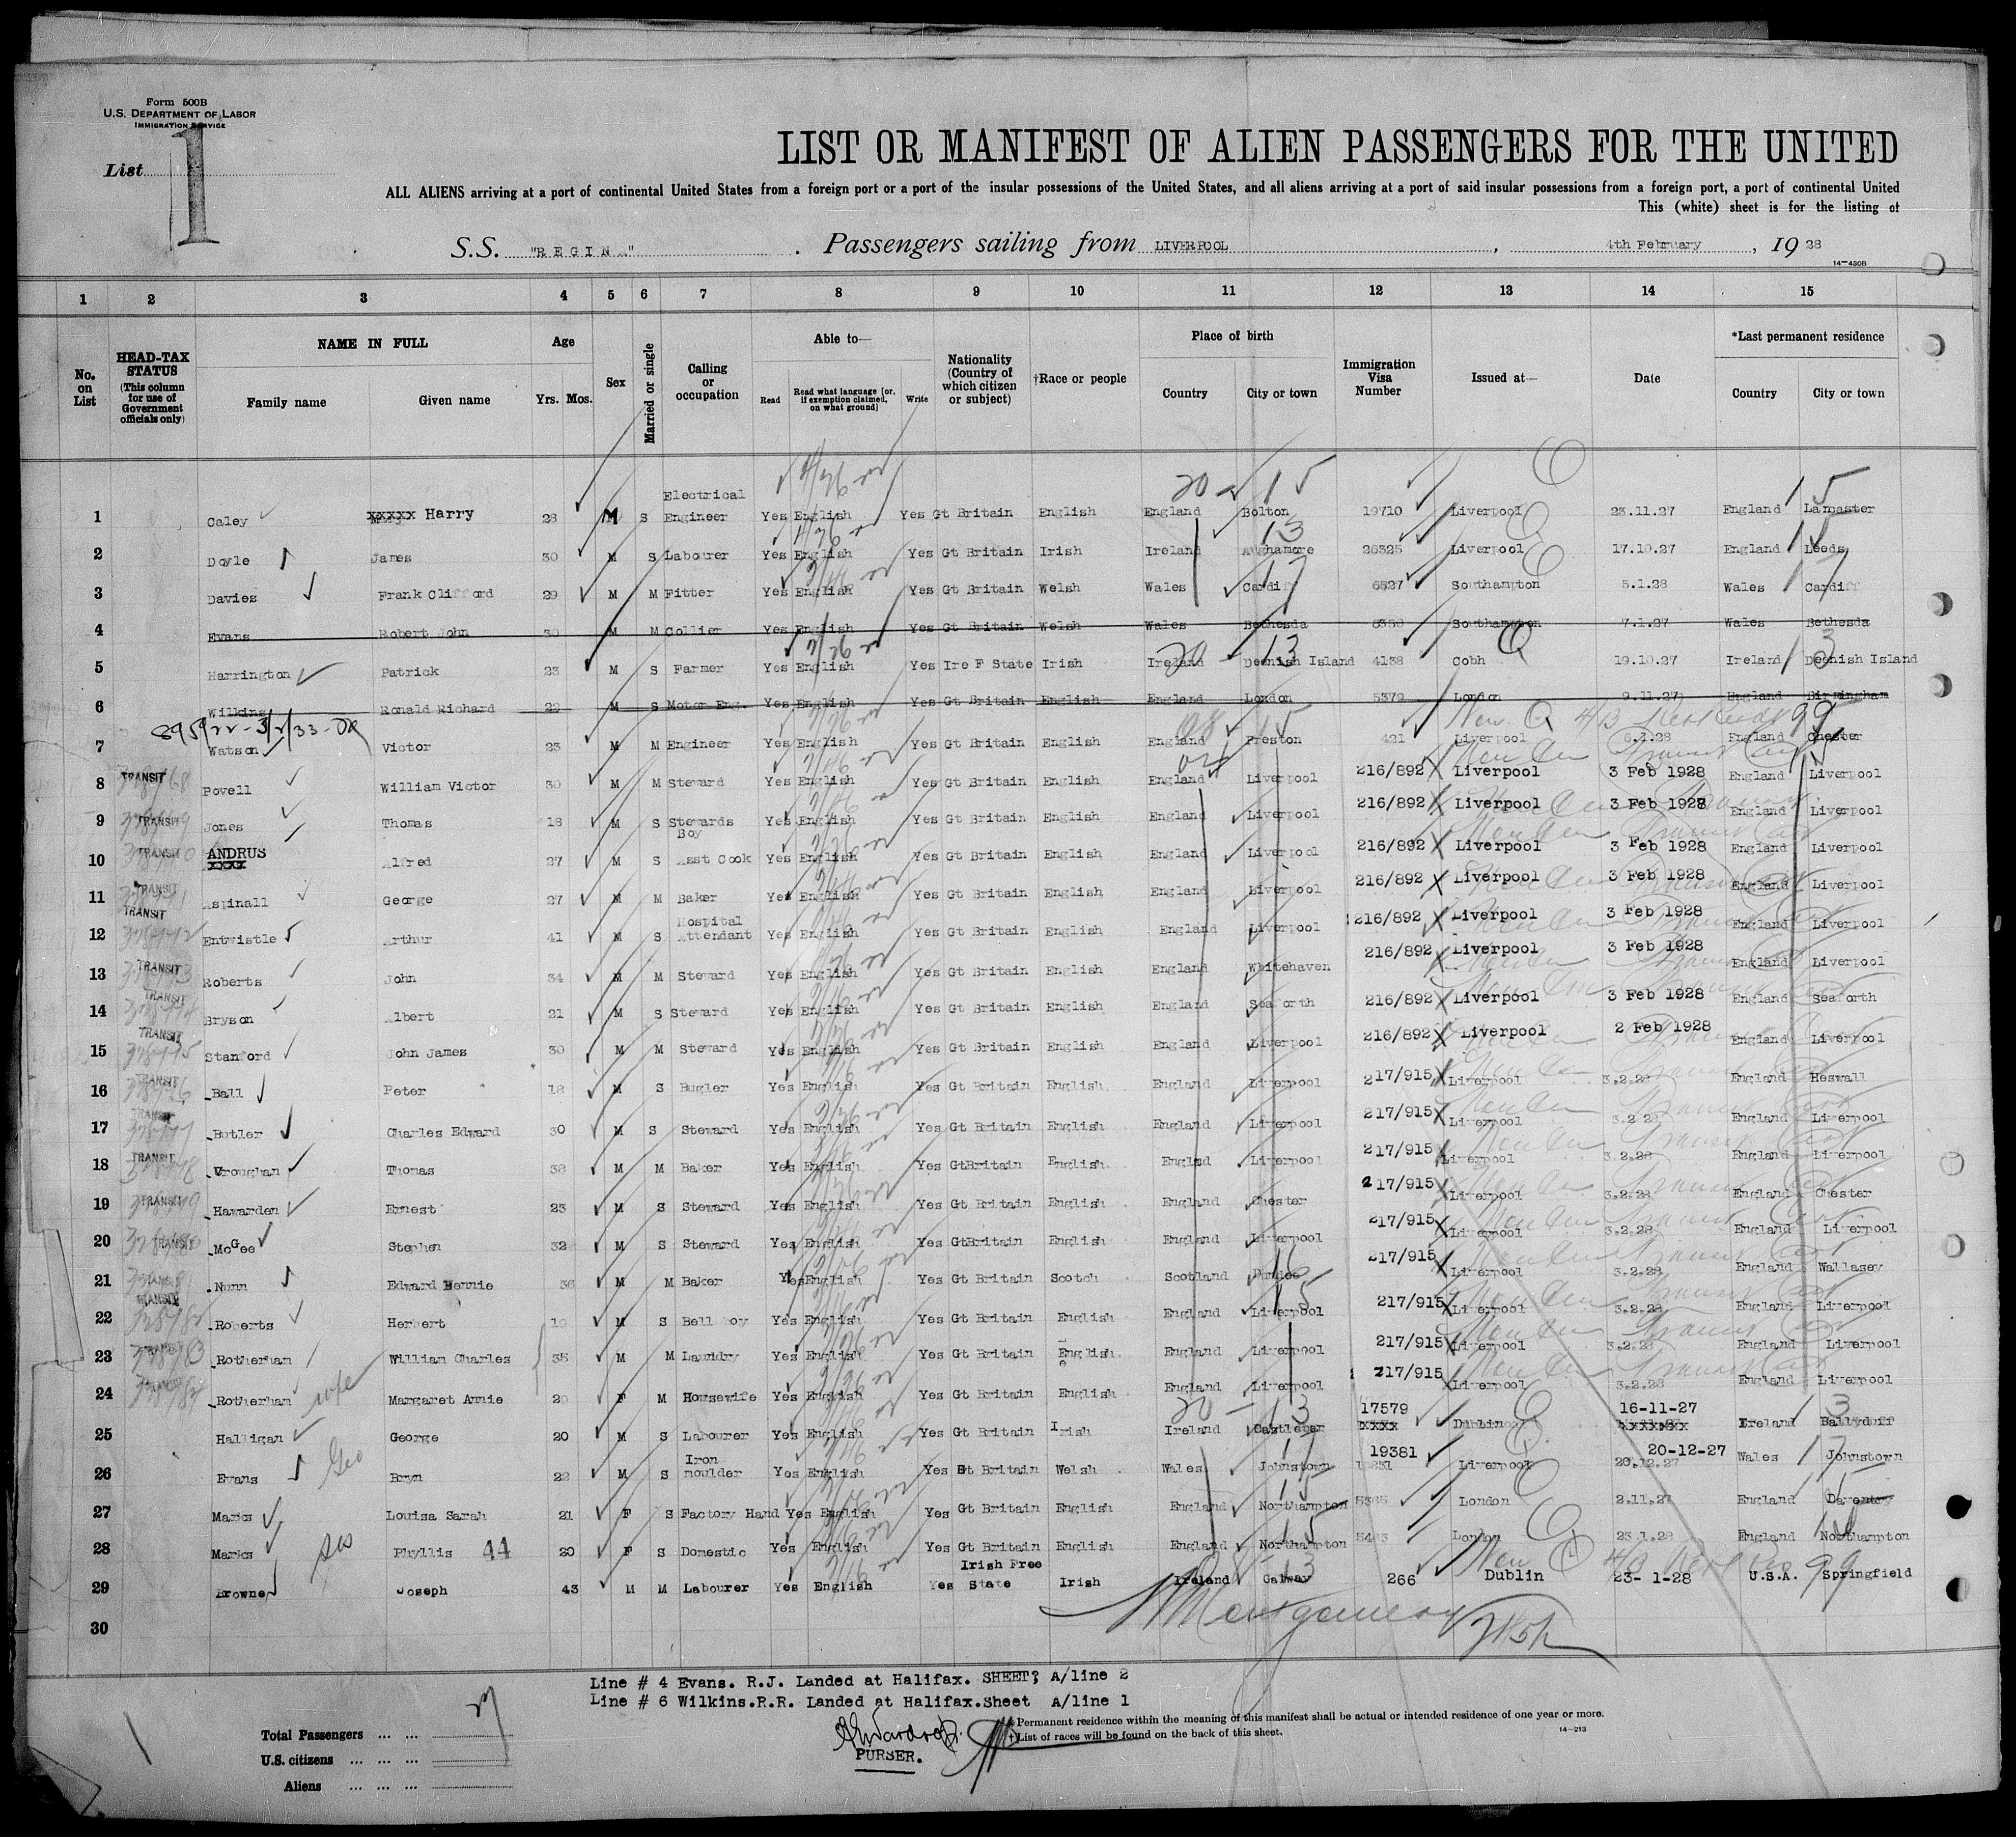 Form 500B
U.S. DEPARTMENT OF LABOR
IMMIGRATION SERVICE
List 1
LIST OR MANIFEST OF ALIEN PASSENGERS FOR THE UNITED
ALL ALIENS arriving at a port of continental United States from a foreign port or a port of the insular possessions of the United States, and all aliens arriving at a port of said insular possessions from a foreign port, a port of continental United
This (white) sheet is for the listing of
S.S. "REGIN " . Passengers sailing from LIVERPOOL , 4th February , 19 28
14-430B
1 2 3 4 5 6 7 8 9 10 11 12 13 14 15
No. on List
HEAD-TAX STATUS (This column for use of Government officials only)
NAME IN FULL Family name Given name
Age Yrs. Mos.
Sex
Married or single
Calling or occupation
Able to— Read Read what language [or, if exemption claimed, on what ground] Write
Nationality (Country of which citizen or subject)
†Race or people
Place of birth Country City or town
Immigration Visa Number
Issued at—
Date
*Last permanent residence Country City or town
1 Caley xxxxx Harry 28 M S Electrical Engineer Yes English Yes Gt Britain English England Bolton 19710 Liverpool 23.11.27 England Lancaster
2 Doyle James 30 M S Labourer Yes English Yes Gt Britain Irish Ireland Aughamore 26325 Liverpool 17.10.27 England Leeds
3 Davies Frank Clifford 29 M M Fitter Yes English Yes Gt Britain Welsh Wales Cardiff 6527 Southampton 5.1.28 Wales Cardiff
4 Evans Robert John 30 M M Collier Yes English Yes Gt Britain Welsh Wales Bethesda Southampton 7.1.27 Wales Bethesda
5 Harrington Patrick 23 M S Farmer Yes English Yes Ire F State Irish Ireland Deenish Island 4138 Cobh 19.10.27 Ireland Deenish Island
6 Wilkins Ronald Richard 22 M S Motor Eng. Yes English Yes Gt Britain English England London 5379 London 9.11.27 England Birmingham
7 Watson Victor 23 M M Engineer Yes English Yes Gt Britain English England Preston 421 Liverpool 6.1.28 England Chester
8 TRANSIT Povell William Victor 30 M M Steward Yes English Yes Gt Britain English England Liverpool 216/892 Liverpool 3 Feb 1928 England Liverpool
9 TRANSIT Jones Thomas 18 M S Stewards Boy Yes English Yes Gt Britain English England Liverpool 216/892 Liverpool 3 Feb 1928 England Liverpool
10 TRANSIT ANDRUS xxxx Alfred 27 M S Asst Cook Yes English Yes Gt Britain English England Liverpool 216/892 Liverpool 3 Feb 1928 England Liverpool
11 TRANSIT Aspinall George 27 M M Baker Yes English Yes Gt Britain English England Liverpool 216/892 Liverpool 3 Feb 1928 England Liverpool
12 TRANSIT Entwistle Arthur 41 M S Hospital Attendant Yes English Yes Gt Britain English England Liverpool 216/892 Liverpool 3 Feb 1928 England Liverpool
13 TRANSIT Roberts John 34 M M Steward Yes English Yes Gt Britain English England Whitehaven 216/892 Liverpool 3 Feb 1928 England Liverpool
14 TRANSIT Bryson Albert 21 M S Steward Yes English Yes Gt Britain English England Seaforth 216/892 Liverpool 3 Feb 1928 England Seaforth
15 TRANSIT Stanford John James 30 M M Steward Yes English Yes Gt Britain English England Liverpool 216/892 Liverpool 2 Feb 1928 England Liverpool
16 TRANSIT Ball Peter 18 M S Bugler Yes English Yes Gt Britain English England Liverpool 217/915 Liverpool 3.2.28 England Heswall
17 TRANSIT Butler Charles Edward 30 M S Steward Yes English Yes Gt Britain English England Liverpool 217/915 Liverpool 3.2.28 England Liverpool
18 TRANSIT Vroughan Thomas 38 M M Baker Yes English Yes GtBritain English Englnd Liverpool 217/915 Liverpool 3.2.28 England Liverpool
19 TRANSIT Hawarden Ernest 23 M S Steward Yes English Yes Gt Britain English England Chester 217/915 Liverpool 3.2.28 England Chester
20 TRANSIT McGee Stephen 32 M S Steward Yes English Yes GtBritain English England Liverpool 217/915 Liverpool 3.2.28 England Liverpool
21 TRANSIT Nunn Edward Bennie 36 M M Baker Yes English Yes Gt Britain Scotch Scotland Dundee 217/915 Liverpool 3.2.28 England Wallasey
22 TRANSIT Roberts Herbert 19 M S Bell boy Yes English Yes Gt Britain English England Liverpool 217/915 Liverpool 3.2.28 England Liverpool
23 TRANSIT Rotherham William Charles 35 M M Laundry Yes English Yes Gt Britain English England Liverpool 217/915 Liverpool 3.2.28 England Liverpool
24 Rotherham wife Margaret Annie 29 F M Housewife Yes English Yes Gt Britain English England Liverpool 217/915 Liverpool 3.2.28 England Liverpool
25 Halligan George 20 M S Labourer Yes English Yes Gt Britain Irish Ireland Castlebar 17579 xxxx Dublin 16-11-27 Ireland
26 Evans Bryn 22 M S Iron moulder Yes English Yes Gt Britain Welsh Wales Johnstown 19381 Liverpool 20-12-27 20.12.27 Wales Johnstown
27 Marks Louisa Sarah 21 F S Factory Hand Yes English Yes Gt Britain English England Northampton London 2.11.27 England Daventry
28 Marks sis Phyllis 44 20 F S Domestic Yes English Yes Gt Britain English England Northampton London 23.1.28 England Northampton
29 Browne Joseph 43 M M Labourer Yes English Yes Irish Free State Irish Ireland Galway 266 Dublin 23- 1-28 U.S.A. Springfield
30
Line # 4 Evans. R.J. Landed at Halifax. SHEET; A/line 2
Line # 6 Wilkins.R.R. Landed at Halifax.Sheet A/line 1
PURSER.
Total Passengers ... ...
U.S. citizens ... ... ...
Aliens ... ... ...
* Permanent residence within the meaning of this manifest shall be actual or intended residence of one year or more.
† List of races will be found on the back of this sheet.
14-213